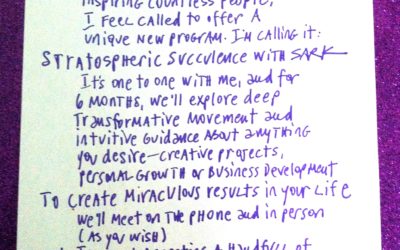 inspiring countless people,
I feel called to offer A
unique new program. I'm calling it:
Stratospheric Succulence with SARK
It's one to one with me, and for
6 months, we'll explore deep
Transformative movement and
intuitive guidance about anything
you desire-creative projects,
personal growth or business development
To create miraculous results in your life
we'll meet on the phone and in person
(as you wish)
a handful of